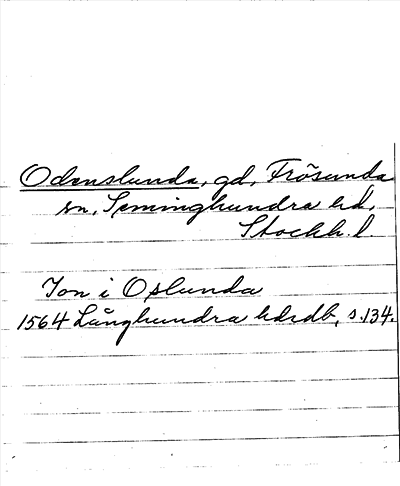 Odenslunda, gd, Frösunda
sn, Seminghundra hd,
Stockh. l.
Jon i Oslunda
1564 Långhundra hdrdb, s. 134.